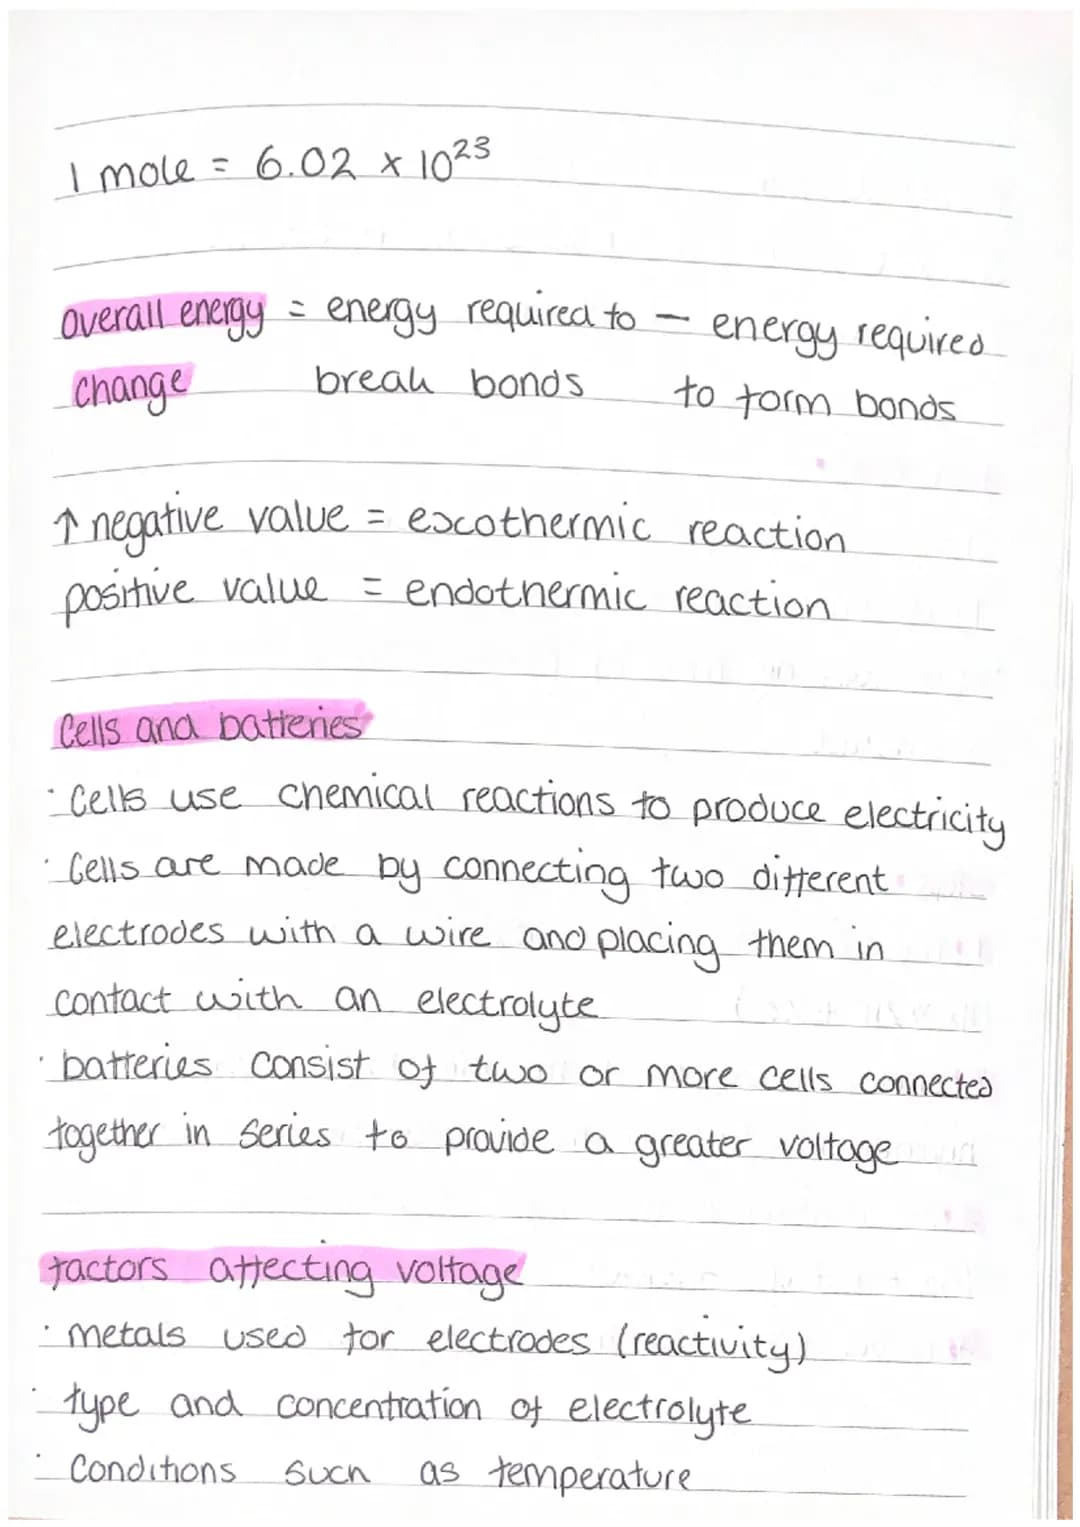 1 mole = 6.02 x 10²³
Overall energy = energy required to – energy required
change break bonds to form bonds
↑ negative value = exothermic reaction
positive value = endothermic reaction
Cells and batteries
· Cells use chemical reactions to produce electricity
· Cells are made by connecting two different
electrodes with a wire and placing them in
contact with an electrolyte
· batteries consist of two or more cells connected
together in series to provide a greater voltage
factors affecting voltage
· metals used for electrodes (reactivity)
· type and concentration of electrolyte
· Conditions such as temperature